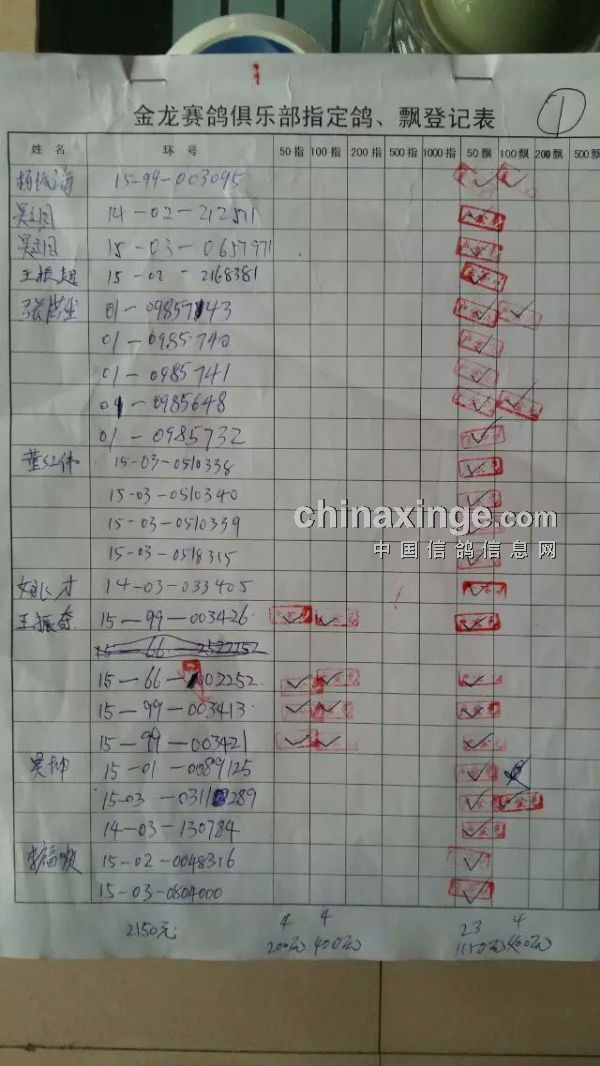 1
金龙赛鸽俱乐部指定鸽、飘登记表
姓名 环号 50指 100指 200指 500指 1000指 50飘 100飘 200飘 500飘
15-99-003095
14-02-212511
15-03-0657971
王振超 15-02-2168381
01-0985743
01-0985740
01-0985741
01-0985648
01-0985732
董红伟 15-03-0510338
15-03-0510340
15-03-0510339
15-03-0518315
14-03-033405
王振奇 15-99-003426
15-66-2522252
15-66-002252
15-99-003413
15-99-003421
吴坤 15-01-0089125
15-03-0311289
14-03-130784
李福顺 15-02-0048316
15-03-0804000
4 4 23 4
2150元 200元 400元 1150元 400元
chinaxinge.com
中国信鸽信息网